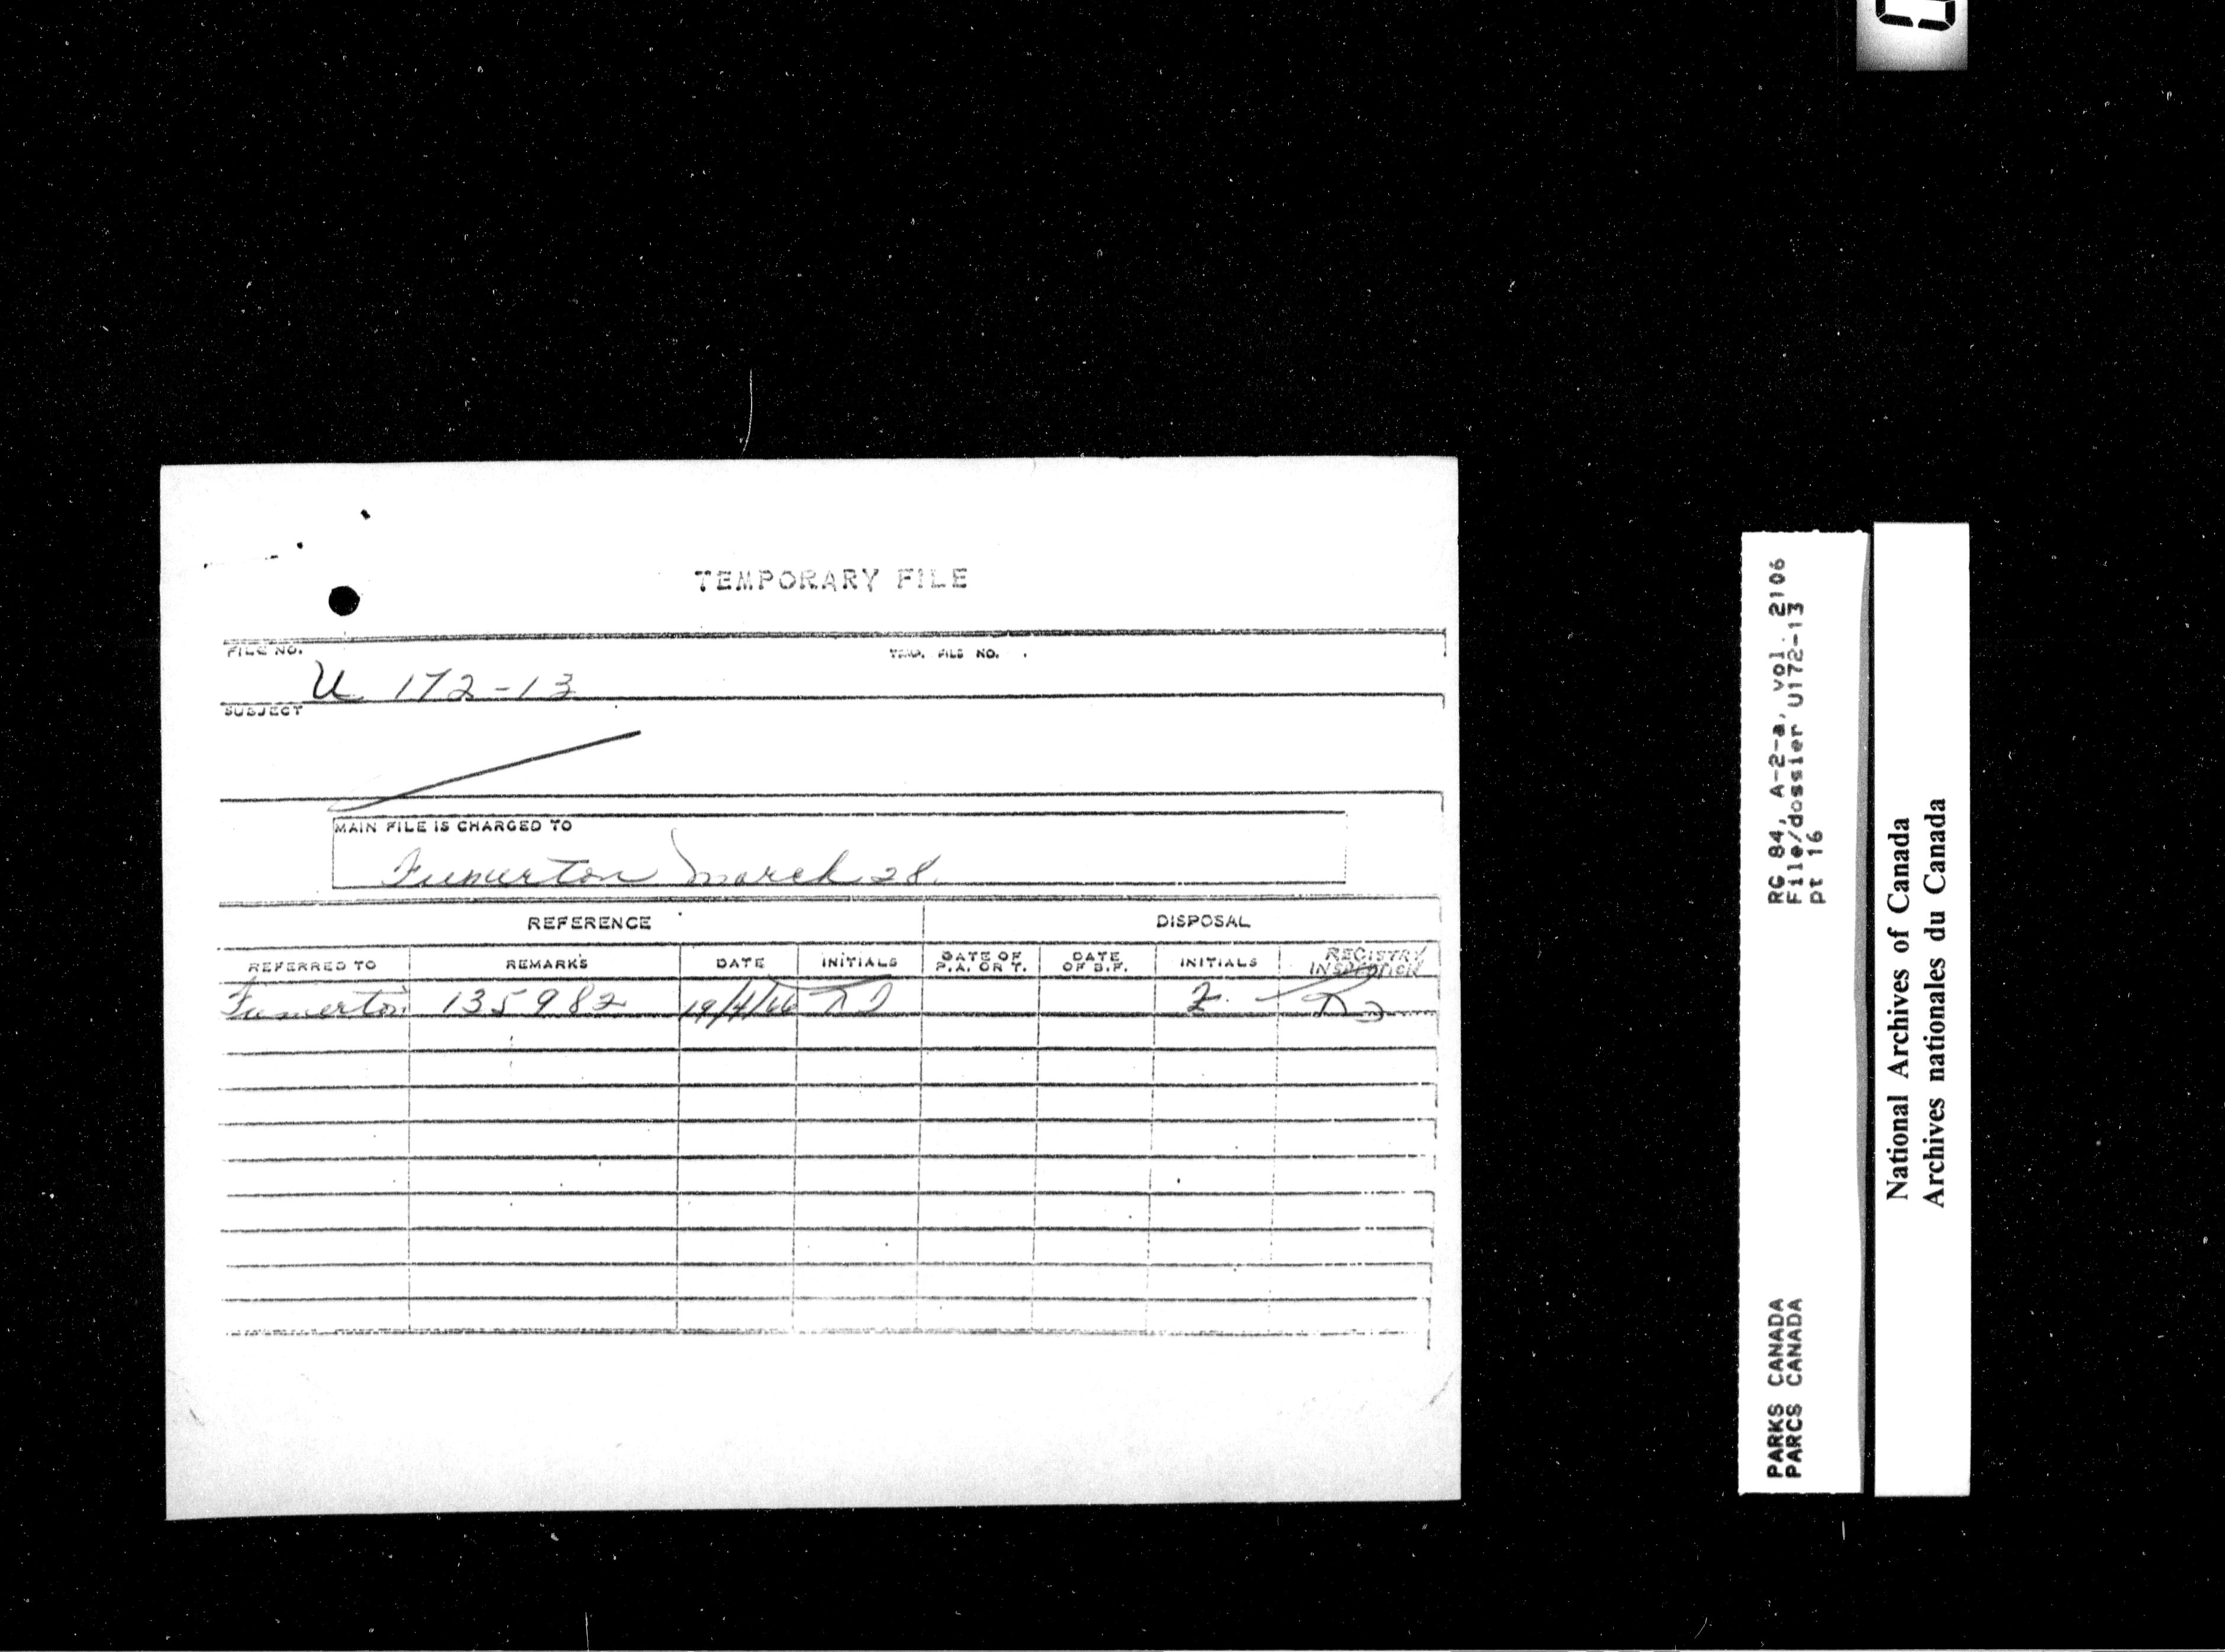 TEMPORARY FILE
FILE NO.
TEMP. FILE NO.
U 172-13
SUBJECT
MAIN FILE IS CHARGED TO
Fumerton March 28
REFERENCE DISPOSAL
REFERRED TO REMARKS DATE INITIALS DATE OF P.A. OR T. DATE OF B.F. INITIALS REGISTRY INSPECTION
Fumerton 135982 19/4/66
RG 84, A-2-a, vol. 2106
File/dossier U172-13
pt 16
PARKS CANADA
PARCS CANADA
National Archives of Canada
Archives nationales du Canada